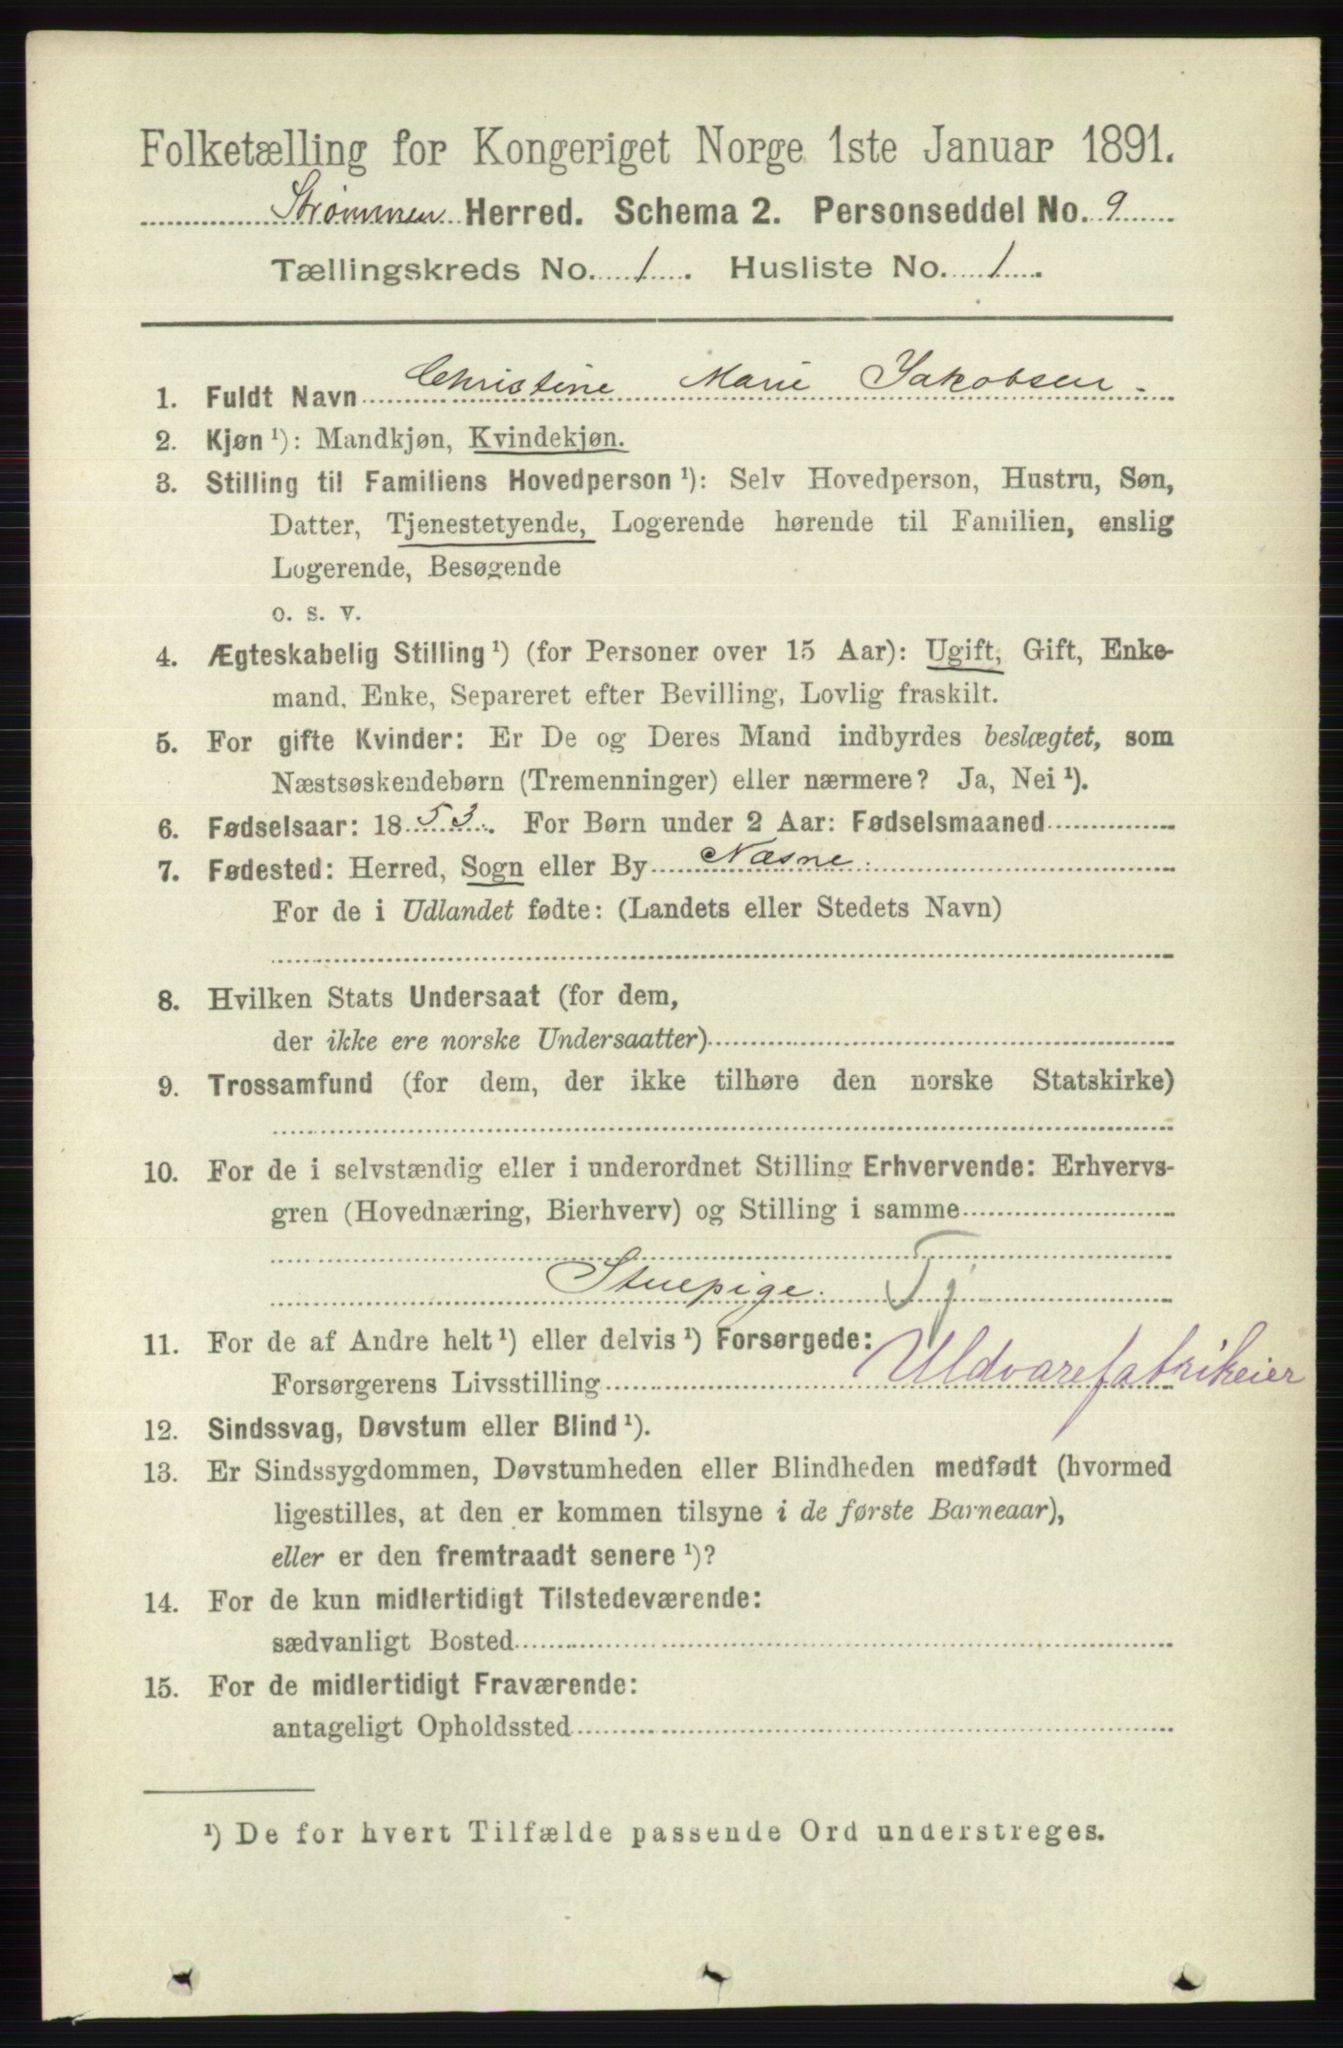 Folketælling for Kongeriget Norge 1ste Januar 1891.
Strømmen Herred. Schema 2. Personseddel No. 9
Tællingskreds No. 1. Husliste No. 1.
1. Fuldt Navn Christine Marie Jakobsen.
2. Kjøn ¹): Mandkjøn, Kvindekjøn.
3. Stilling til Familiens Hovedperson ¹): Selv Hovedperson, Hustru, Søn,
Datter, Tjenestetyende, Logerende hørende til Familien, enslig
Logerende, Besøgende
o. s. v.
4. Ægteskabelig Stilling ¹) (for Personer over 15 Aar): Ugift, Gift, Enke-
mand, Enke, Separeret efter Bevilling, Lovlig fraskilt.
5. For gifte Kvinder: Er De og Deres Mand indbyrdes beslægtet, som
Næstsøskendebørn (Tremenninger) eller nærmere? Ja, Nei ¹).
6. Fødselsaar: 1853. For Børn under 2 Aar: Fødselsmaaned
7. Fødested: Herred, Sogn eller By Næsne.
For de i Udlandet fødte: (Landets eller Stedets Navn)
8. Hvilken Stats Undersaat (for dem,
der ikke ere norske Undersaatter)
9. Trossamfund (for dem, der ikke tilhøre den norske Statskirke)
10. For de i selvstændig eller i underordnet Stilling Erhvervende: Erhvervs-
gren (Hovednæring, Bierhverv) og Stilling i samme
Stuepige. Tj
11. For de af Andre helt ¹) eller delvis ¹) Forsørgede:
Forsørgerens Livsstilling Uldvarefabrikeier
12. Sindssvag, Døvstum eller Blind ¹).
13. Er Sindssygdommen, Døvstumheden eller Blindheden medfødt (hvormed
ligestilles, at den er kommen tilsyne i de første Barneaar),
eller er den fremtraadt senere ¹)?
14. For de kun midlertidigt Tilstedeværende:
sædvanligt Bosted
15. For de midlertidigt Fraværende:
antageligt Opholdssted
¹) De for hvert Tilfælde passende Ord understreges.